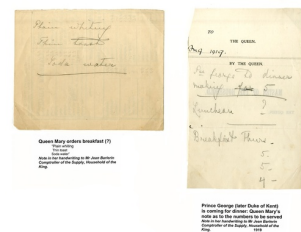 Plain whiting
Soda water
Queen Mary orders breakfast (?)
"Plain whiting
Thin toast
Soda water"
Note in her handwriting to Mr Jean Bertorin
Comptroller of the Supply, Household of the
King.
TO
THE QUEEN.
1919.
BY THE QUEEN.
to dinner
making 5
Luncheon ?
Breakfast Thurs.
5.
5.
Prince George (later Duke of Kent)
is coming for dinner: Queen Mary's
note as to the numbers to be served
Note in her handwriting to Mr Jean Bertorin
Comptroller of the Supply, Household of the
King.
1919